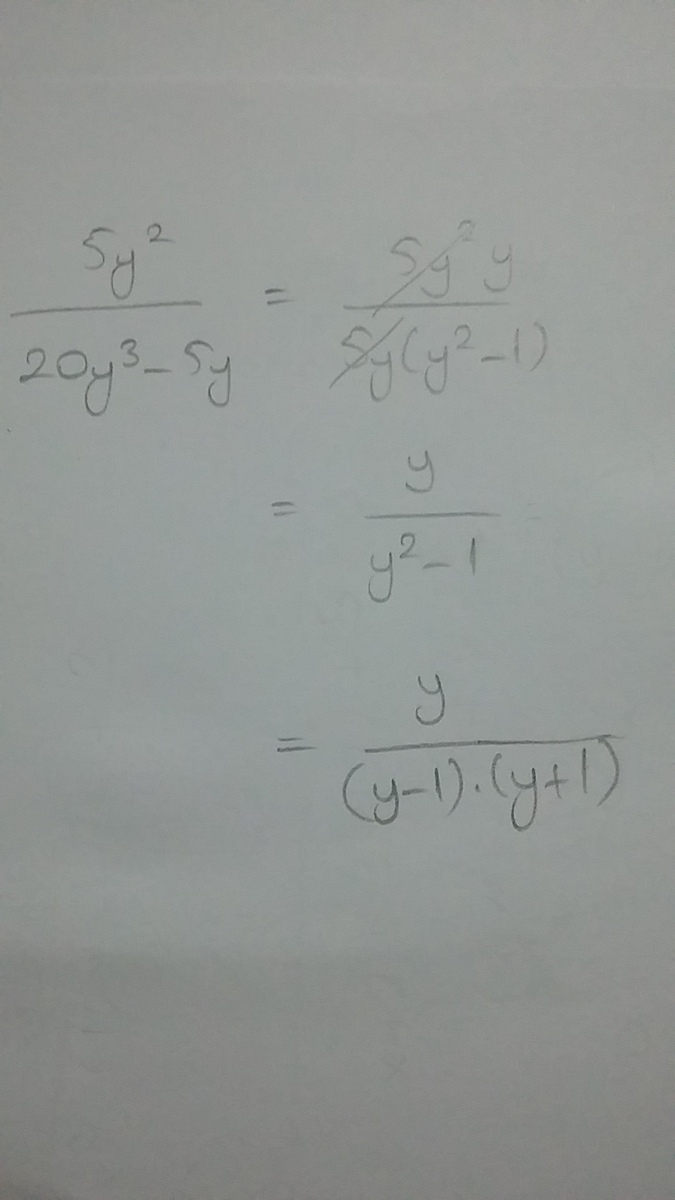 5y²/(20y³-5y) = 5y² y/(5y(y²-1))
= y/(y²-1)
= y/((y-1).(y+1))